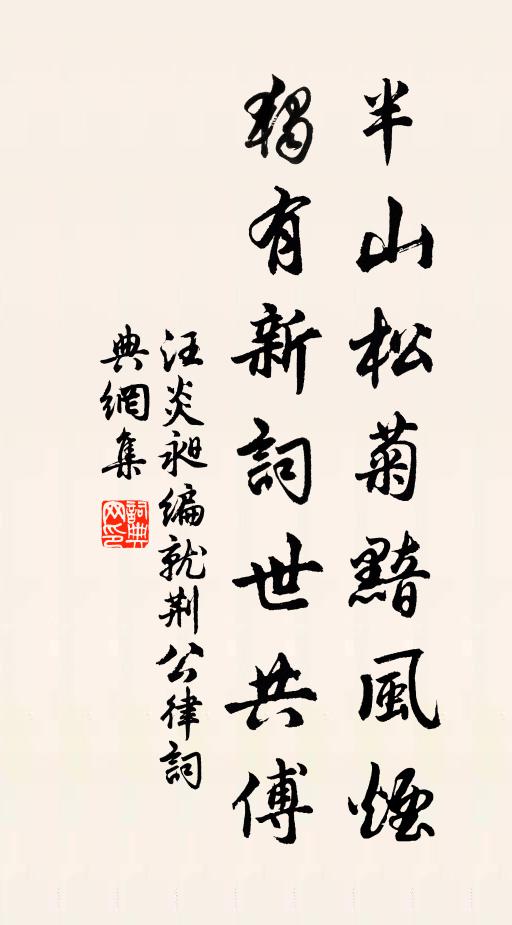 半山松菊黯風煙
獨有新詞世共傅
汪炎昶編就荆公律詞
典網集
詞典网印